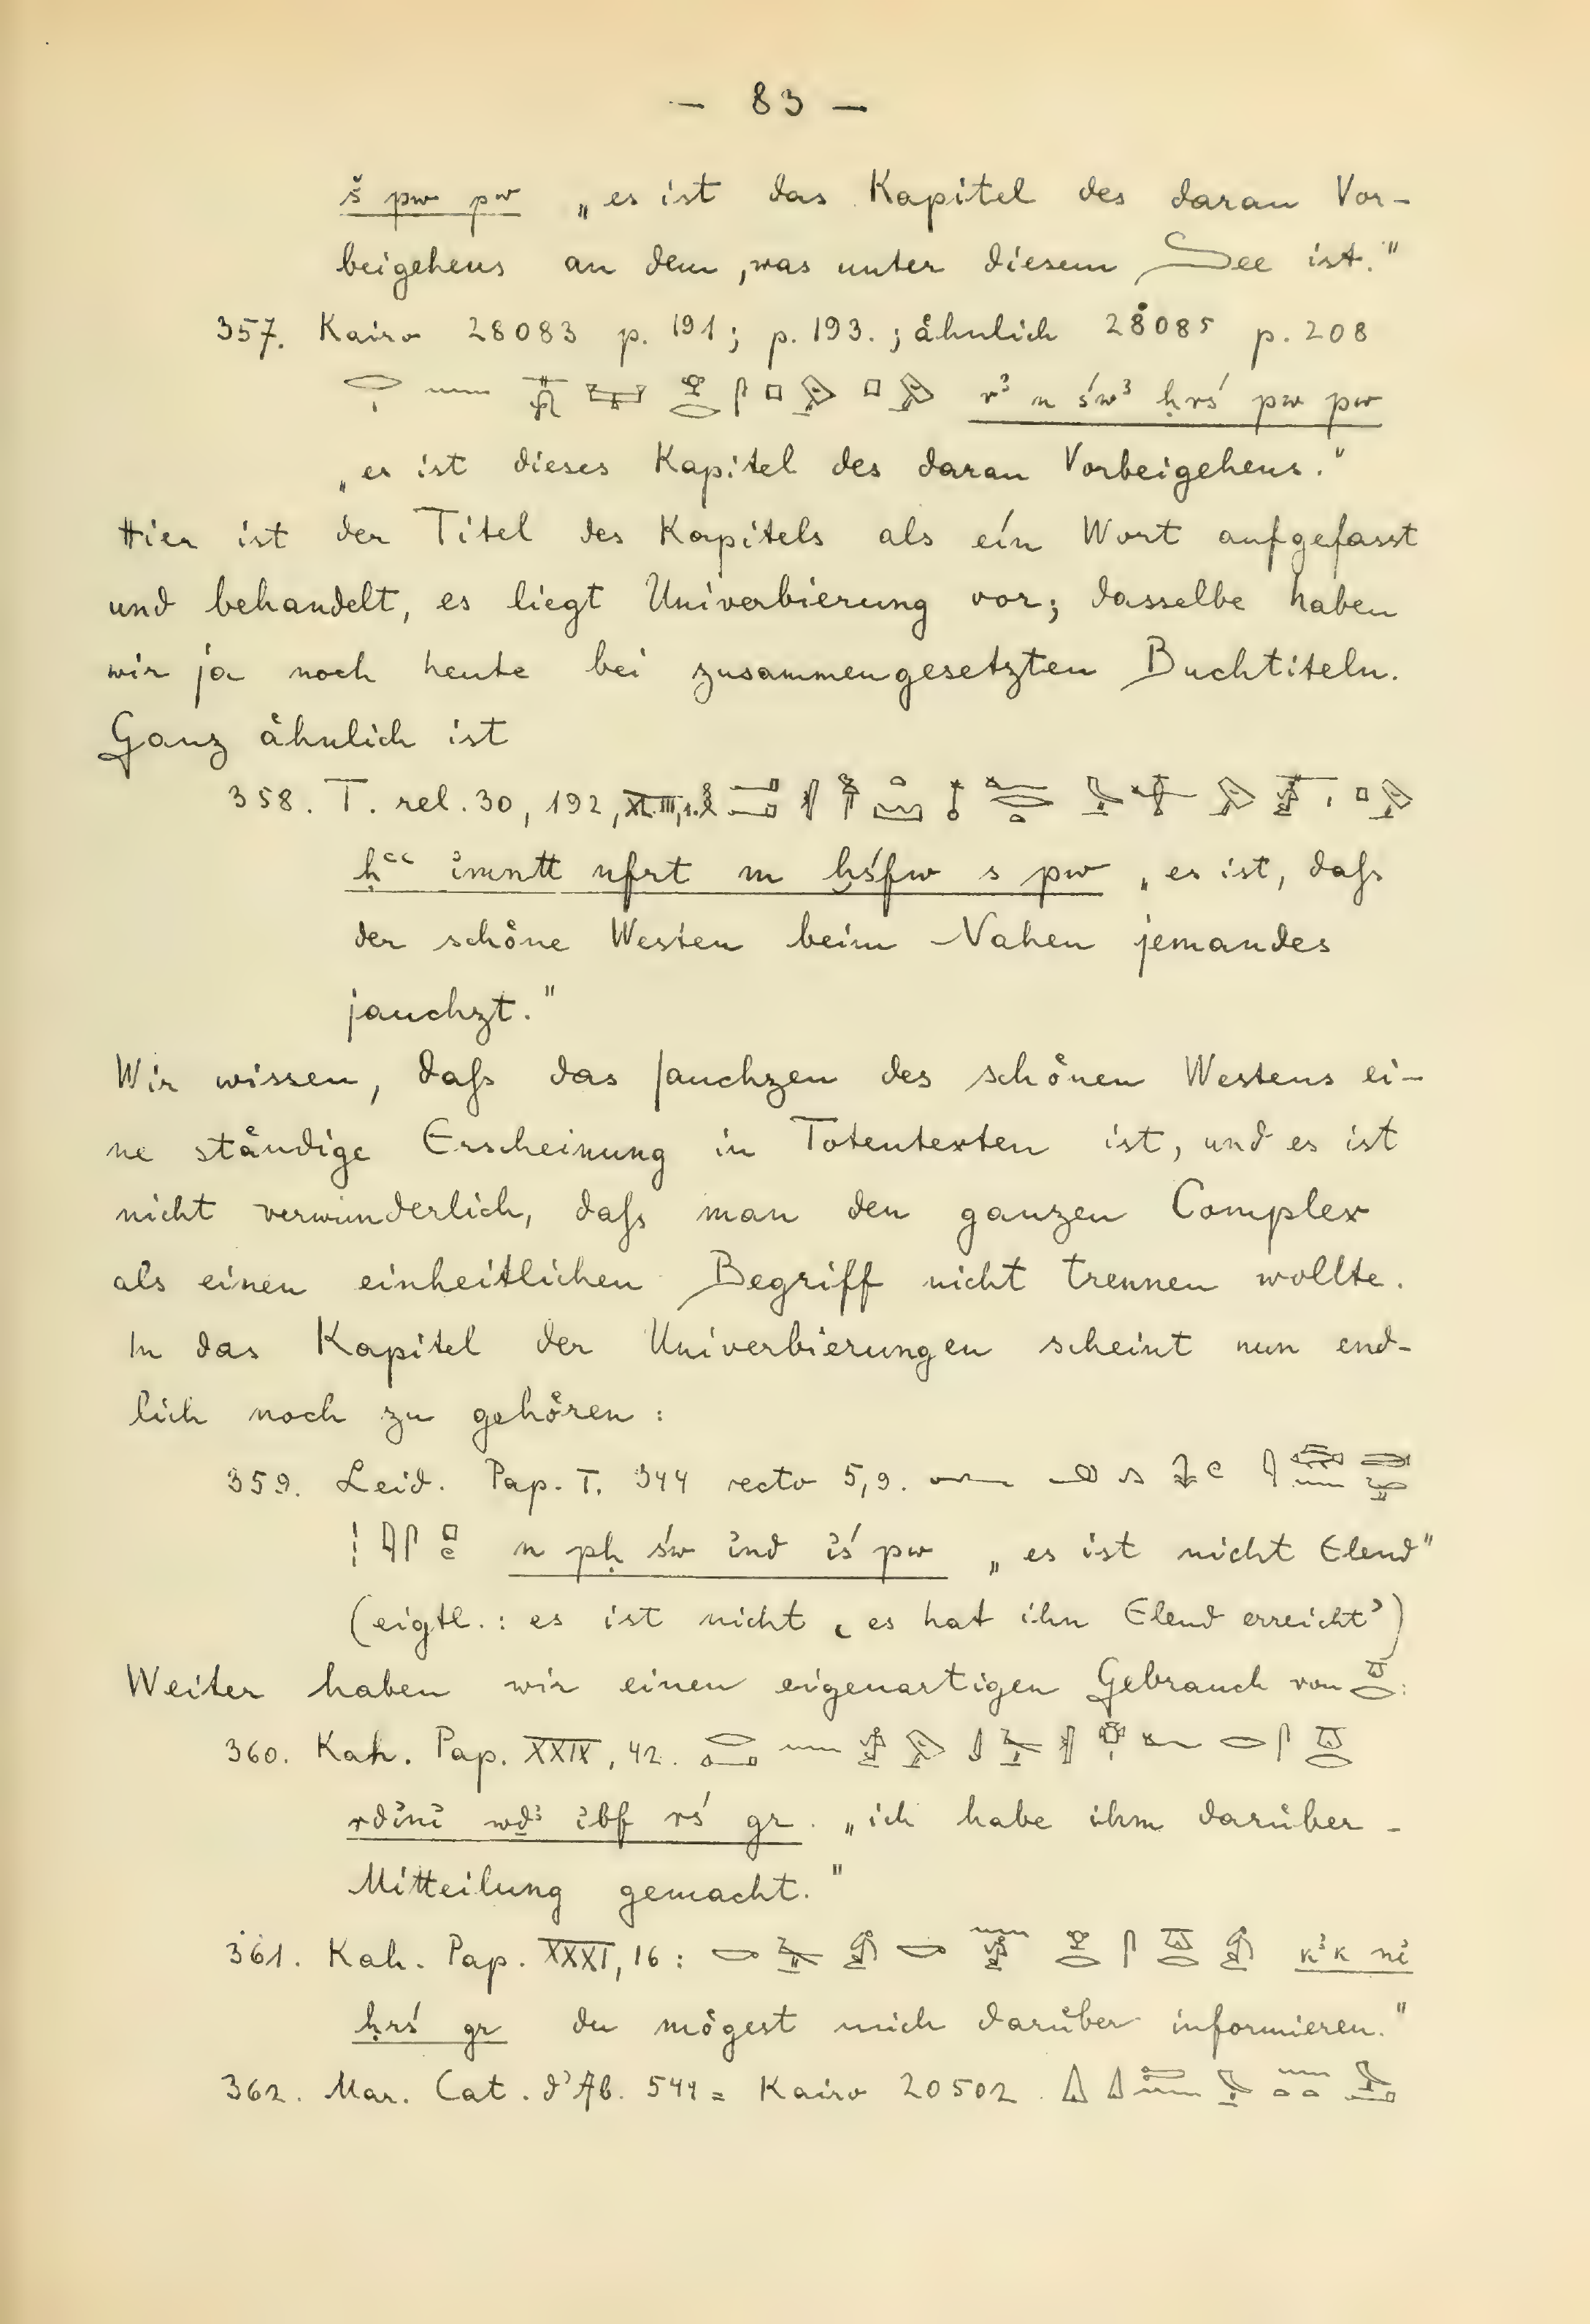 — 83 —
š pw pw „es ist das Kapitel des daran Vor-
beigehens an dem, was unter diesem See ist."
357. Kairo 28083 p. 191; p. 193.; ähnlich 28085 p. 208
rꜣ n św³ ḥrś pw pw
„es ist dieses Kapitel des daran Vorbeigehens."
Hier ist der Titel des Kapitels als ein Wort aufgefasst
und behandelt, es liegt Univerbierung vor; dasselbe haben
wir ja noch heute bei zusammengesetzten Buchtiteln.
Ganz ähnlich ist
358. T. rel. 30, 192,
ḥꜥꜥ ἰmntt nfrt m ḫśfw s pw „es ist, daſs
der schöne Westen beim Nahen jemandes
jauchzt."
Wir wissen, daſs das Jauchzen des schönen Westens ei-
ne ständige Erscheinung in Totentexten ist, und es ist
nicht verwunderlich, daſs man den ganzen Complex
als einen einheitlichen Begriff nicht trennen wollte.
In das Kapitel der Univerbierungen scheint nun end-
lich noch zu gehören:
359. Leid. Pap. T. 344 recto 5,9.
n pḥ św ἰnd ἰś pw „es ist nicht Elend"
(eigtl.: es ist nicht ‚es hat ihn Elend erreicht')
Weiter haben wir einen eigenartigen Gebrauch von :
360. Kah. Pap. XXIX, 42.
rdἰnἰ wḏꜣ ἰbf rś gr. „ich habe ihm darüber-
Mitteilung gemacht."
361. Kah. Pap. XXXI, 16: kꜣk nἰ
ḥrś gr du mögest mich darüber informieren."
362. Mar. Cat. d'Ab. 544 = Kairo 20502.